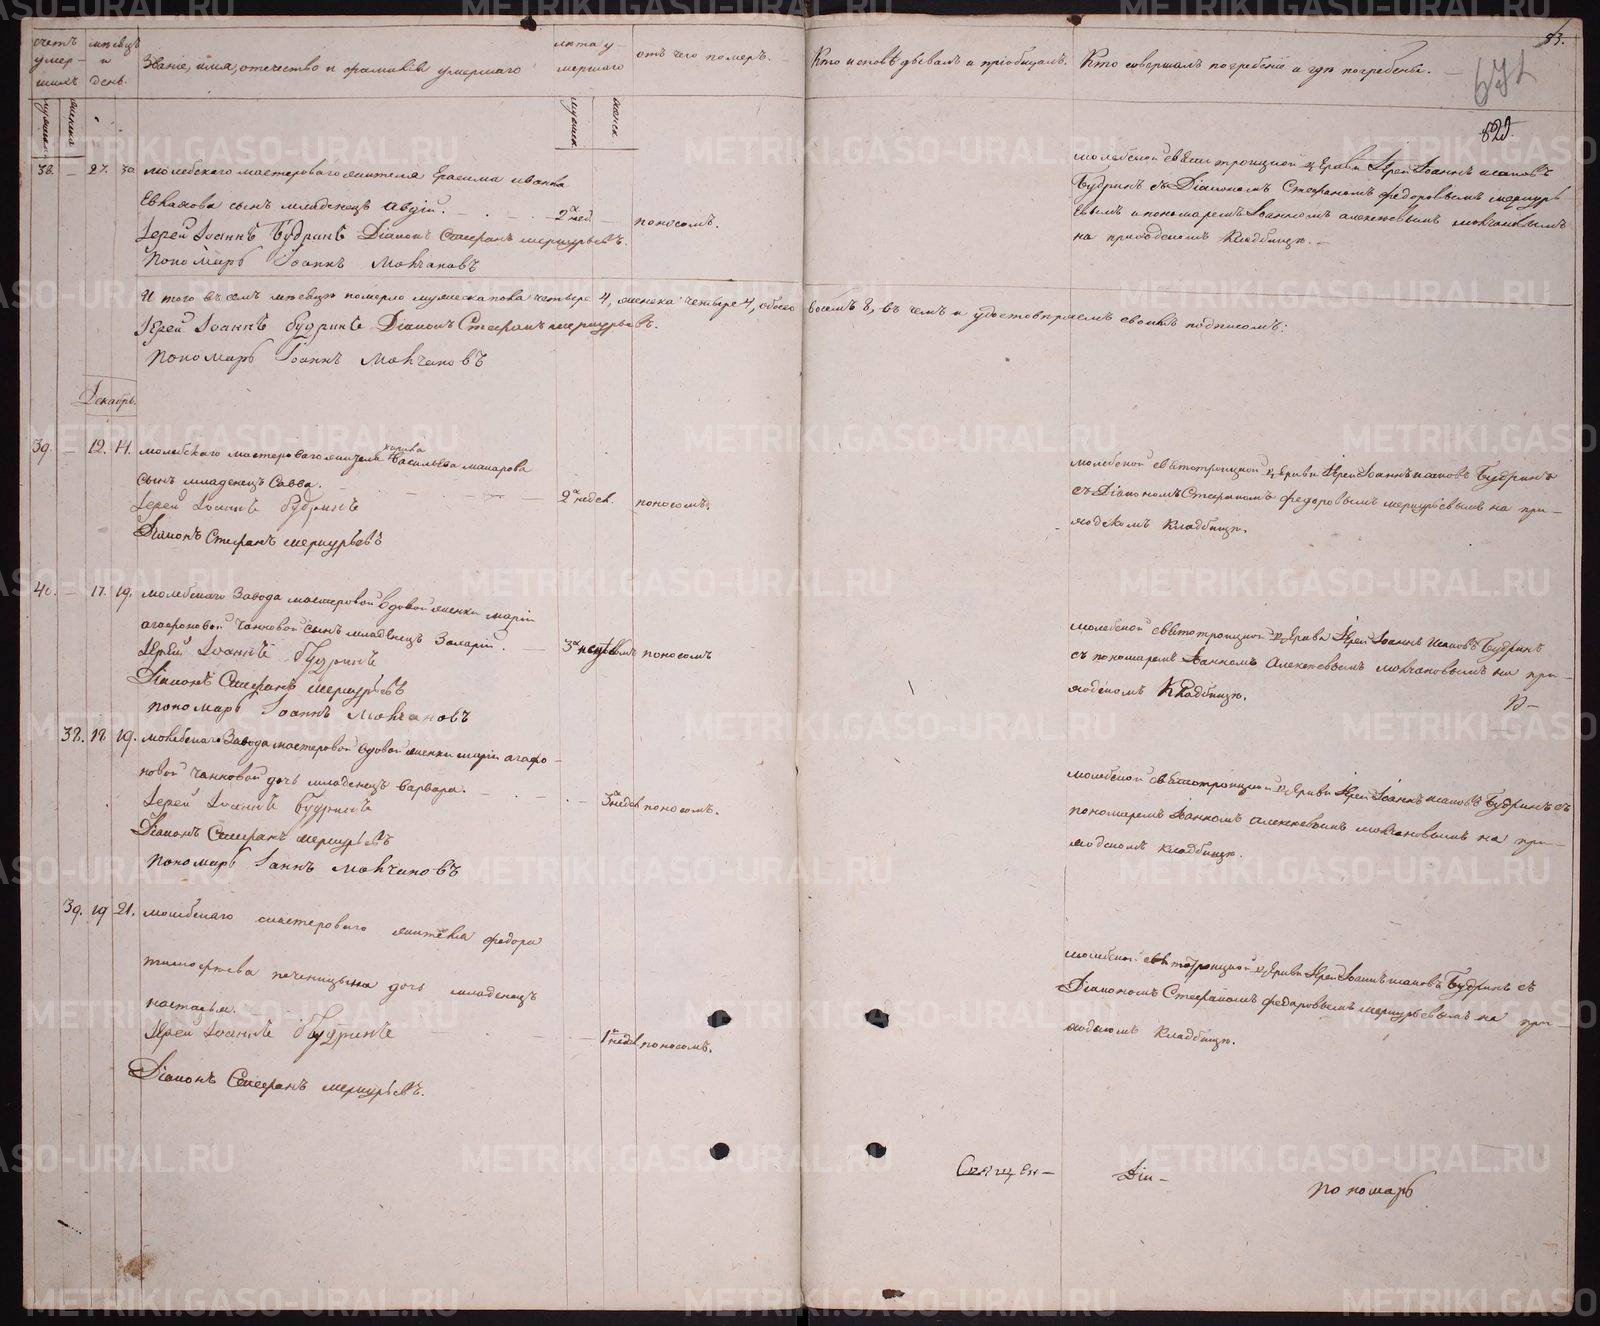 счетъ умершихъ
мѣсяцъ и день.
Званіе, имя, отечество и фамилія умершаго
лѣта умершаго
отъ чего померъ.
Кто исповѣдывалъ и пріобщалъ.
Кто совершалъ погребеніе и гдѣ погребены.
83.
671
825.
мужеска
женска
мужеск.
женск.
38. — 27. 30
молебскаго мастероваго жителя Ерасима иванова
сынъ младенецъ Авдій.
2 нед.
поносомъ.
Іерей Іоаннъ Будринъ Діаконъ Стефанъ меркурьевъ.
Пономарь Іоаннъ Молчановъ
молебской святотроицкой церкви Іерей Іоаннъ исаковъ
Будринъ съ Діакономъ Стефаномъ федоровымъ меркурь
евымъ и пономаремъ Іоанномъ алексеевымъ молчановымъ
на приходскомъ Кладбищѣ. —
И того въ семъ мѣсяцѣ померло мужеска пола четыре 4, женска четыре 4, обоего восемь 8, въ чемъ и удостовѣряемъ своимъ подписомъ:
Іерей Іоаннъ Будринъ Діаконъ Стефанъ меркурьевъ.
Пономарь Іоаннъ Молчановъ
Декабрь.
39. — 12. 14.
молебскаго мастероваго жителя Васильева макарова
сынъ младенецъ Савва.
2 недѣл.
поносомъ.
Іерей Іоаннъ Будринъ
Діаконъ Стефанъ меркурьевъ
молебской святотроицкой церкви Іерей Іоаннъ исаковъ Будринъ
съ Діакономъ Стефаномъ федоровымъ меркурьевымъ на при—
ходскомъ Кладбищѣ.
40. — 17. 19.
молебскаго Завода мастеровой вдовой женки маріи
агафоновой Чанковой сынъ младенецъ Захарій.
3
поносомъ
Іерей Іоаннъ Будринъ
Діаконъ Стефанъ меркурьевъ
пономарь Іоаннъ Молчановъ
молебской святотроицкой церкви Іерей Іоаннъ исаковъ Будринъ
съ пономаремъ Іоанномъ Алексеевымъ молчановымъ на при—
ходскомъ Кладбищѣ.
38. 18. 19.
молебскаго Завода мастеровой вдовой женки маріи агафо—
новой Чанковой дочь младенецъ варвара.
3 недел
поносомъ.
Іерей Іоаннъ Будринъ
Діаконъ Стефанъ меркурьевъ
пономарь Іаннъ Молчановъ
молебской святотроицкой церкви Іерей Іоаннъ исаковъ Будринъ съ
пономаремъ Іоанномъ алексеевымъ молчановымъ на при—
ходскомъ кладбищѣ.
39. 19 21.
молебскаго мастероваго жителя федора
тимофеева печеницына дочь младенецъ
настасья.
1 недел
поносомъ.
Іерей Іоаннъ Будринъ
Діаконъ Стефанъ меркурьевъ.
молебской святотроицкой церкви Іерей Іоаннъ исаковъ Будринъ съ
Діакономъ Стефаномъ федоровымъ меркурьевымъ на при—
ходскомъ Кладбищѣ.
Священ—
Діа—
пономарь
METRIKI.GASO-URAL.RU